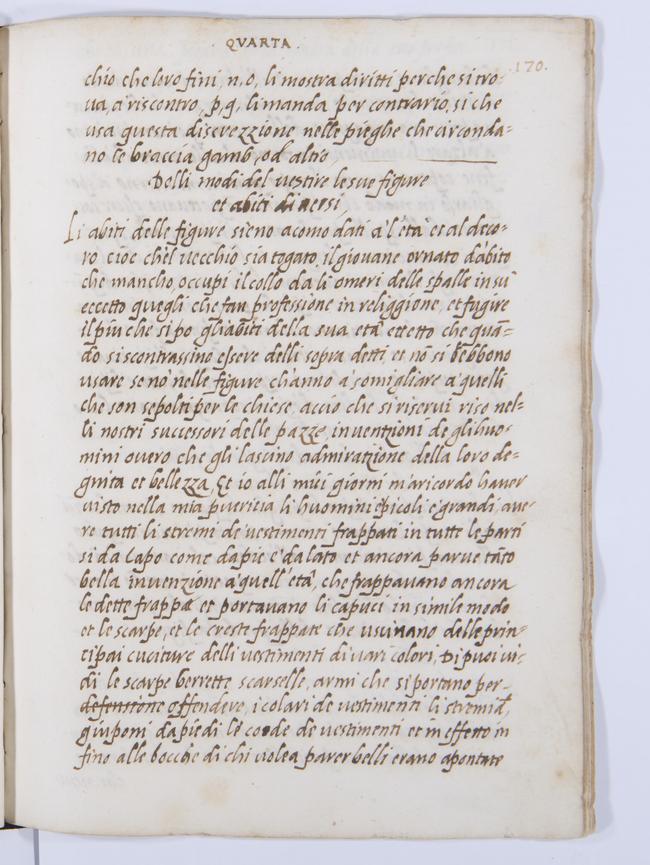 QVARTA.
170.
chio che loro fini, n, o, li mostra diritti perche si tro-
ua, a riscontro, p, q, li manda per contrario, si che
usa questa discrezzione nelle pieghe che circonda=
no le braccia gamb, od altro
Delli modi del vestire le sue figure
et abiti diversi,
Li abiti delle figure sieno acomodati a l'età et al deco-
ro cioe chel vecchio sia togato, il giovane ornato d'abito
che mancho, occupi il collo da li omeri delle spalle in su
eccetto quegli che fan professione in religgione, et fugire
il piu che si po gliabiti della sua età eccetto che quā-
do si scontrassino essere delli sopra detti, et nō si debbono
usare se nō nelle figure ch'anno a' somigliare a' quelli
che son sepolti per le chiese, accio che si riservi riso nel-
li nostri successori delle pazze, invenzioni de gli huo-
mini overo che gli lascino admirazione della loro de-
gnita et bellezza, Et io alli miei giorni m'aricordo haver
visto nella mia puericia li huomini e picoli e grandi, ave-
re tutti li stremi de vestimenti frappati in tutte le parti
si da capo come da pie e da lato et ancora parve tāto
bella invenzione a' quell'età, che frappavano ancora
le dette frappe et portavano li capuci in simile modo
et le scarpe, et le creste frappate che uscivano delle prin-
cipai cuciture delli vestimenti di vari colori, Di poi vi-
di le scarpe berrette scarselle, armi che si portano per
defensione offendere, i colari de vestimenti li stremi d,
giuponi da piedi le code de vestimenti et in effetto in
fino alle bocche di chi volea parer belli erano apontate